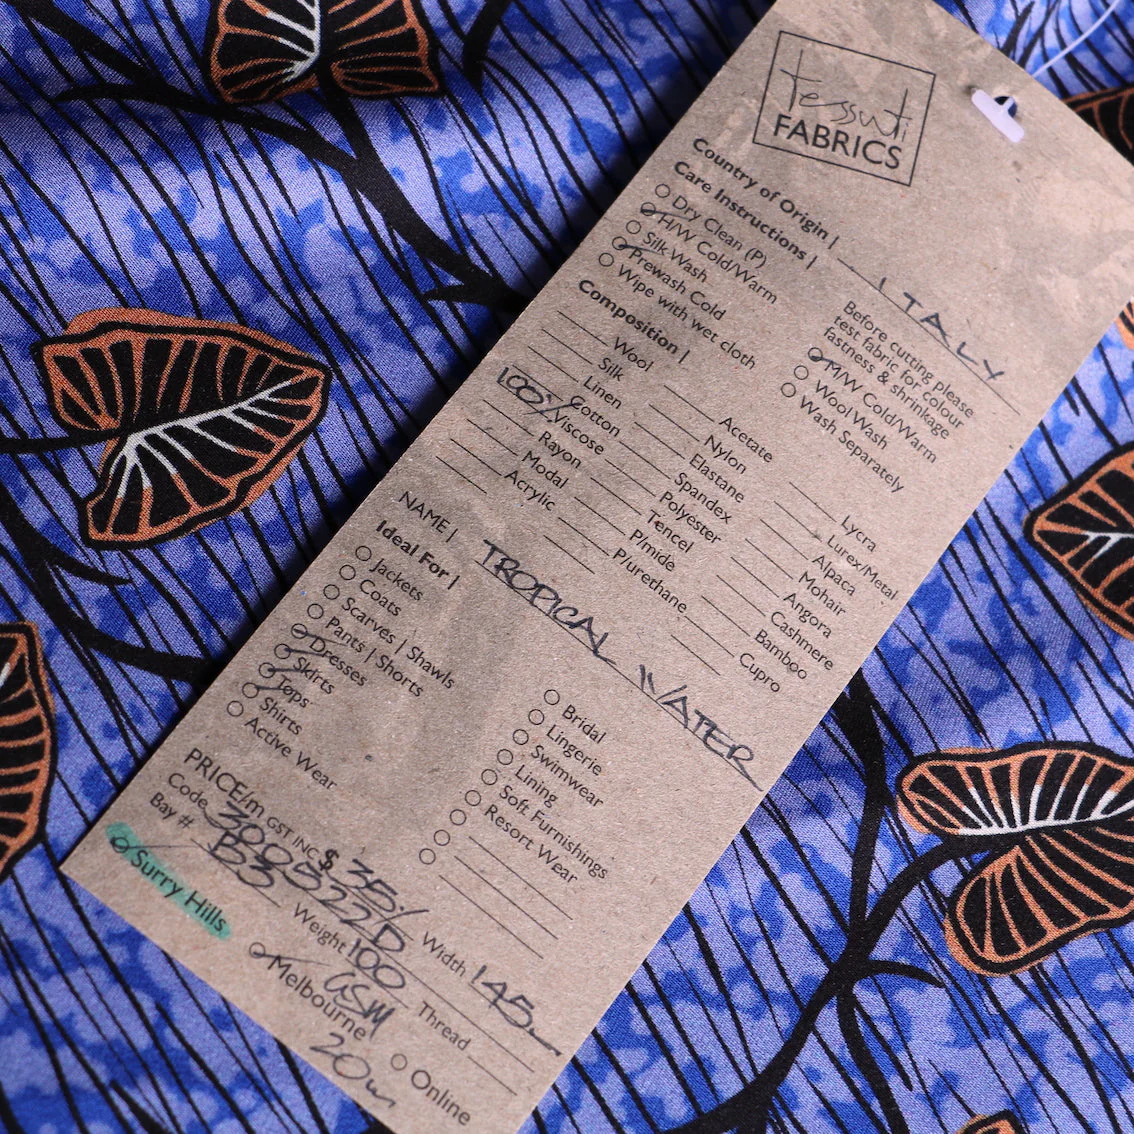 tessuti
FABRICS
Country of Origin | ITALY
Care Instructions |
Dry Clean (P)
H/W Cold/Warm
Silk Wash
Prewash Cold
Wipe with wet cloth
Before cutting please
test fabric for colour
fastness & shrinkage
M/W Cold/Warm
Wool Wash
Wash Separately
Composition |
Wool
Silk
Linen
Cotton
100% Viscose
Rayon
Modal
Acrylic
Acetate
Nylon
Elastane
Spandex
Polyester
Tencel
P/mide
P/urethane
Lycra
Lurex/Metal
Alpaca
Mohair
Angora
Cashmere
Bamboo
Cupro
NAME | TROPICAL WATER
Ideal For |
Jackets
Coats
Scarves | Shawls
Pants | Shorts
Dresses
Skirts
Tops
Shirts
Active Wear
Bridal
Lingerie
Swimwear
Lining
Soft Furnishings
Resort Wear
PRICE/m GST INC $ 35/
Code 300522D Width 145
Bay # B3 Weight 100 GSM Thread
Surry Hills Melbourne 20m Online